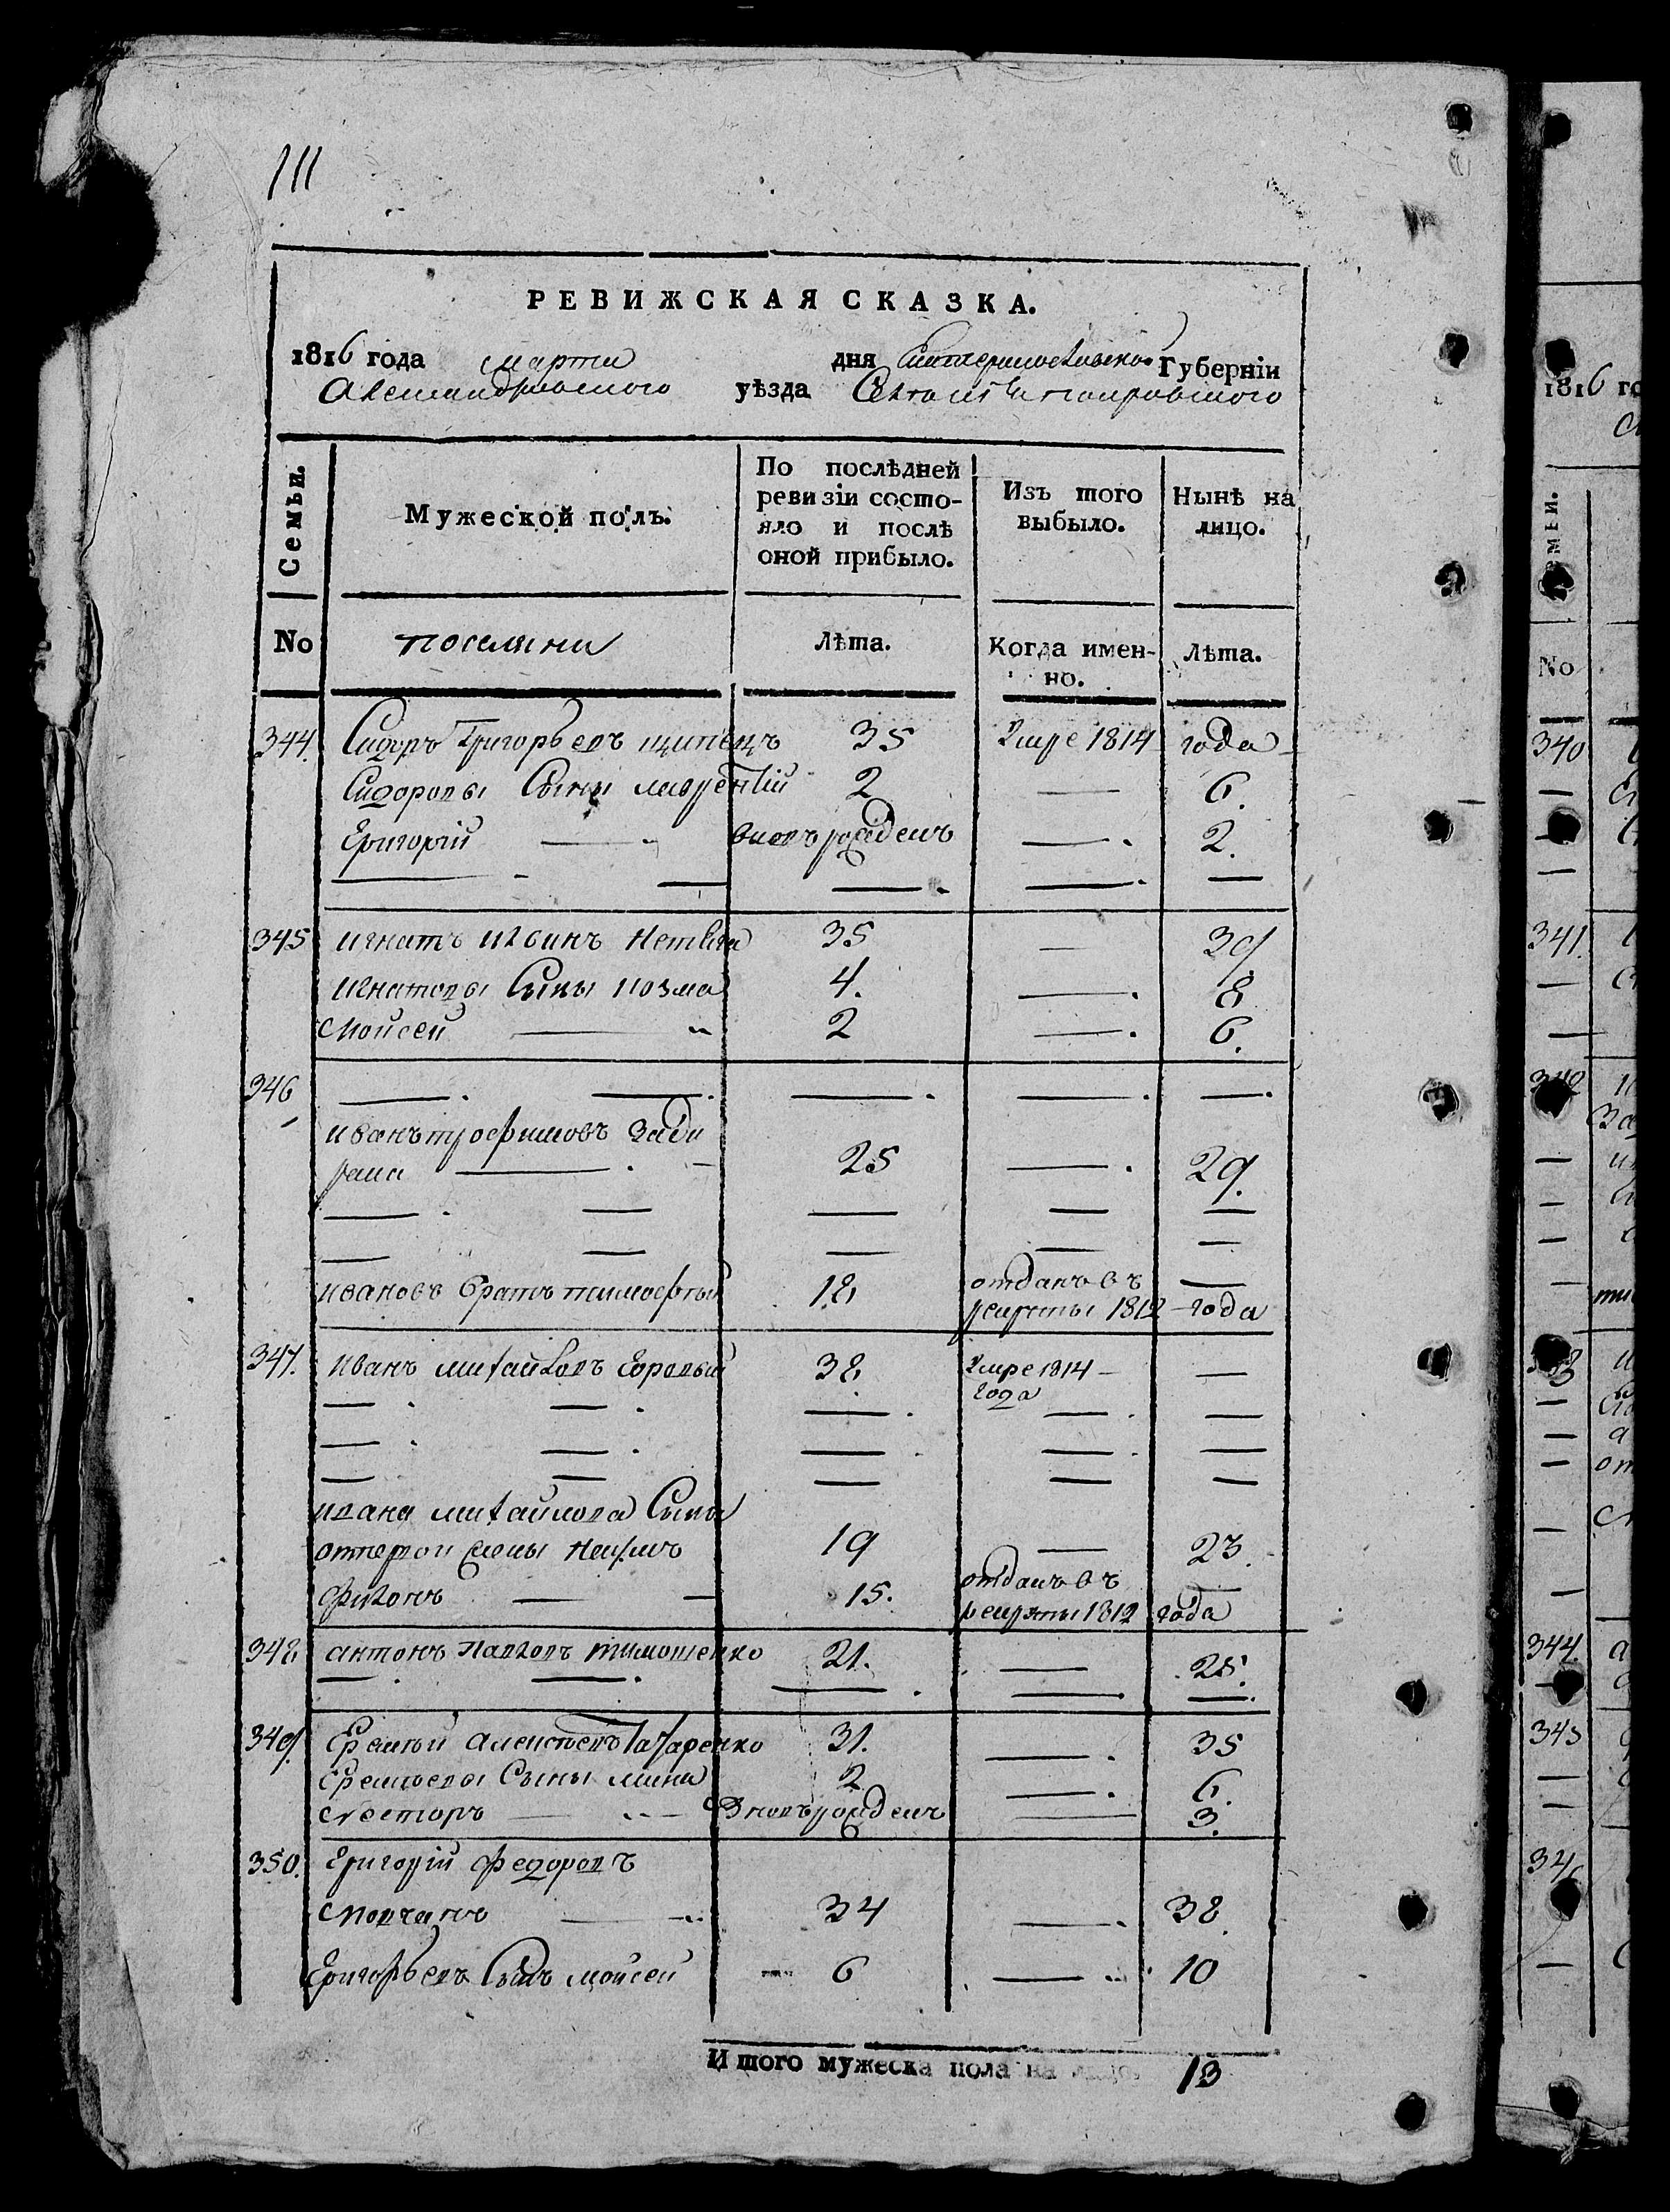 111
РЕВИЖСКАЯ СКАЗКА.
1816 года марта дня Екатеринославской Губерніи
Александровского уѣзда Села
Семьи. Мужеской полъ. По послѣдней ревизіи состояло и послѣ оной прибыло. Изъ того выбыло. Нынѣ на лицо.
No поселяни Лѣта. Когда именно. Лѣта.
344. Сидоръ Григорьевъ щипецъ 35 Умре 1814 года
Сидоровы Сыны лаврентій 2 — 6.
Григорій — вновъ рожденъ — 2.
345 игнатъ ильинъ 35 — 39
игнатовы Сыны козма 4. — 8
Моисей — 2 — 6.
346
иванъ трофимовъ Зади
рака — 25 — 29.
ивановъ братъ тимофѣй 18 отданъ въ —
рекруты 1812 года
347. иванъ михайловъ 38 Умре 1814 —
года
ивана михайлова Сыны
отпервой жены 19 — 23.
филонъ — 15. отданъ въ —
рекруты 1812 года
348 антонъ павловъ тимошенко 21. — 25.
349. Еремѣй алексѣевъ 31. — 35
Еремѣевы Сыны мина 2 — 6.
Несторъ — Вновъ рожденъ — 3.
350. Григорій федоровъ
Мовчанъ — 34 — 38
Григорьевъ Сынъ моисей — 6 — 10
Итого мужеска пола на лицо. 13
1816 го
No
340
341.
342
343
344.
345
346